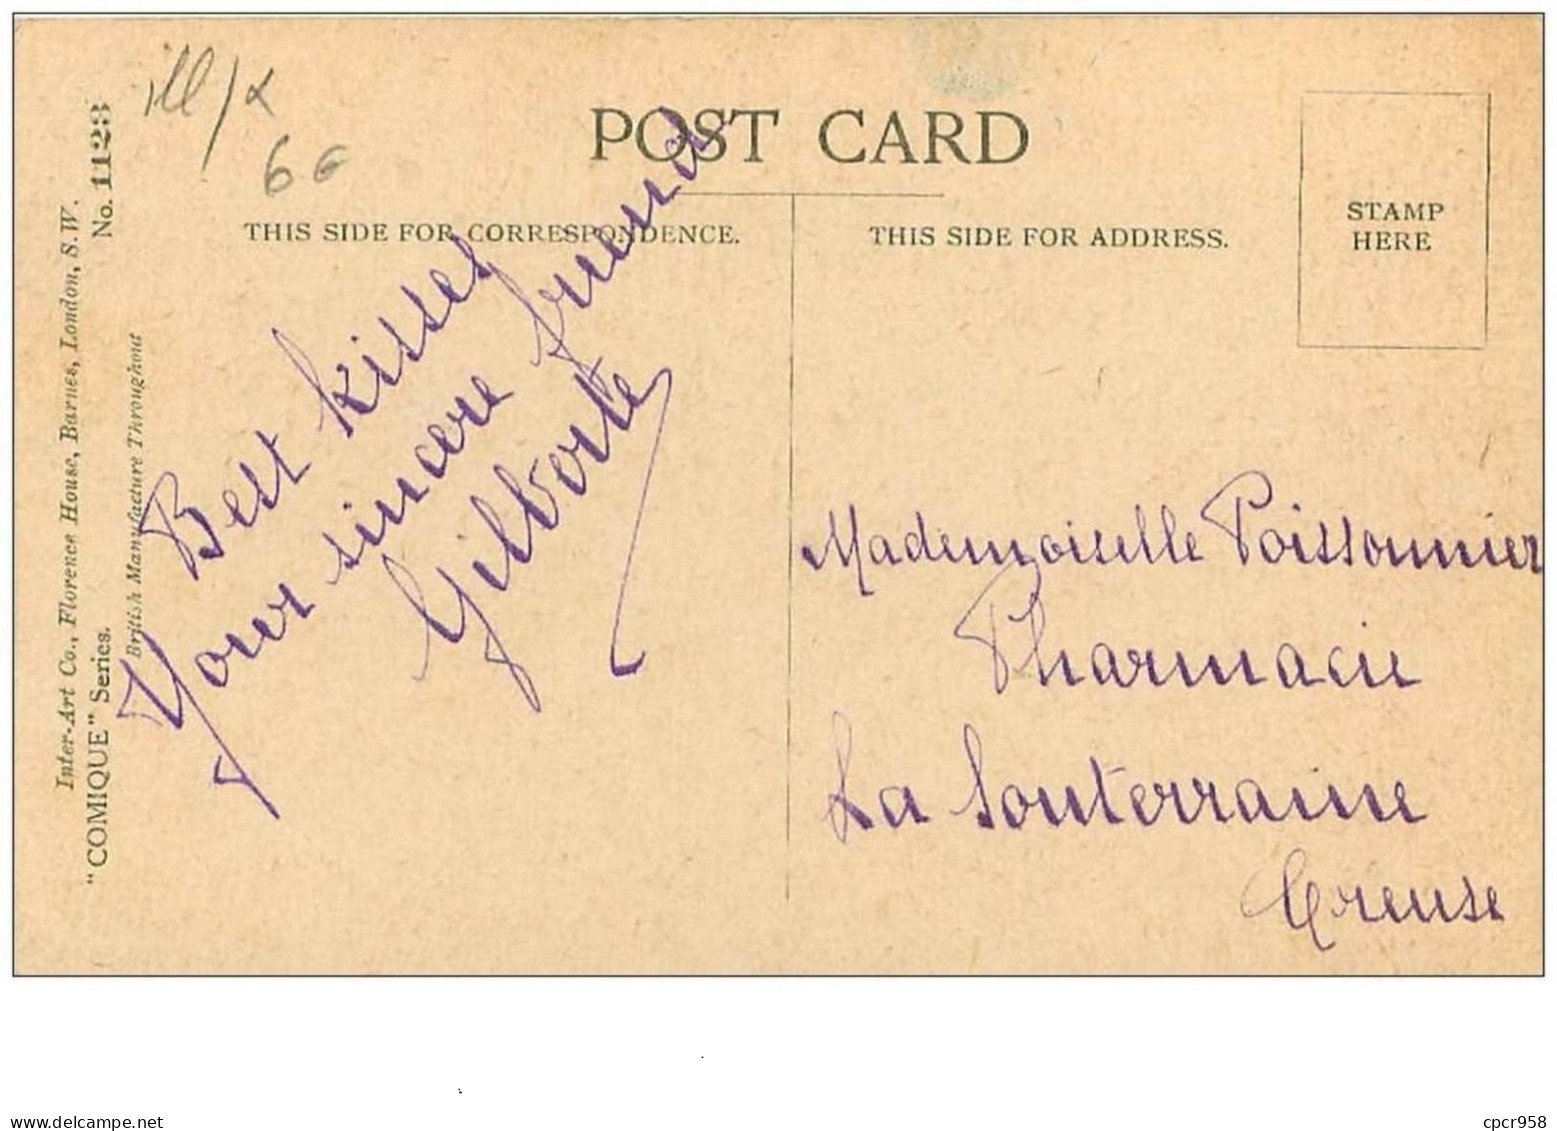 ill/
6€
POST CARD
THIS SIDE FOR CORRESPONDENCE.
THIS SIDE FOR ADDRESS.
STAMP
HERE
Inter-Art Co., Florence House, Barnes, London, S.W.
"COMIQUE" Series.
No. 1123
British Manufacture Throughout
Best kisses
Your sincere friend
Gilberte
Mademoiselle Poissonnier
Pharmacie
La Souterraine
Creuse
www.delcampe.net
cpcr958